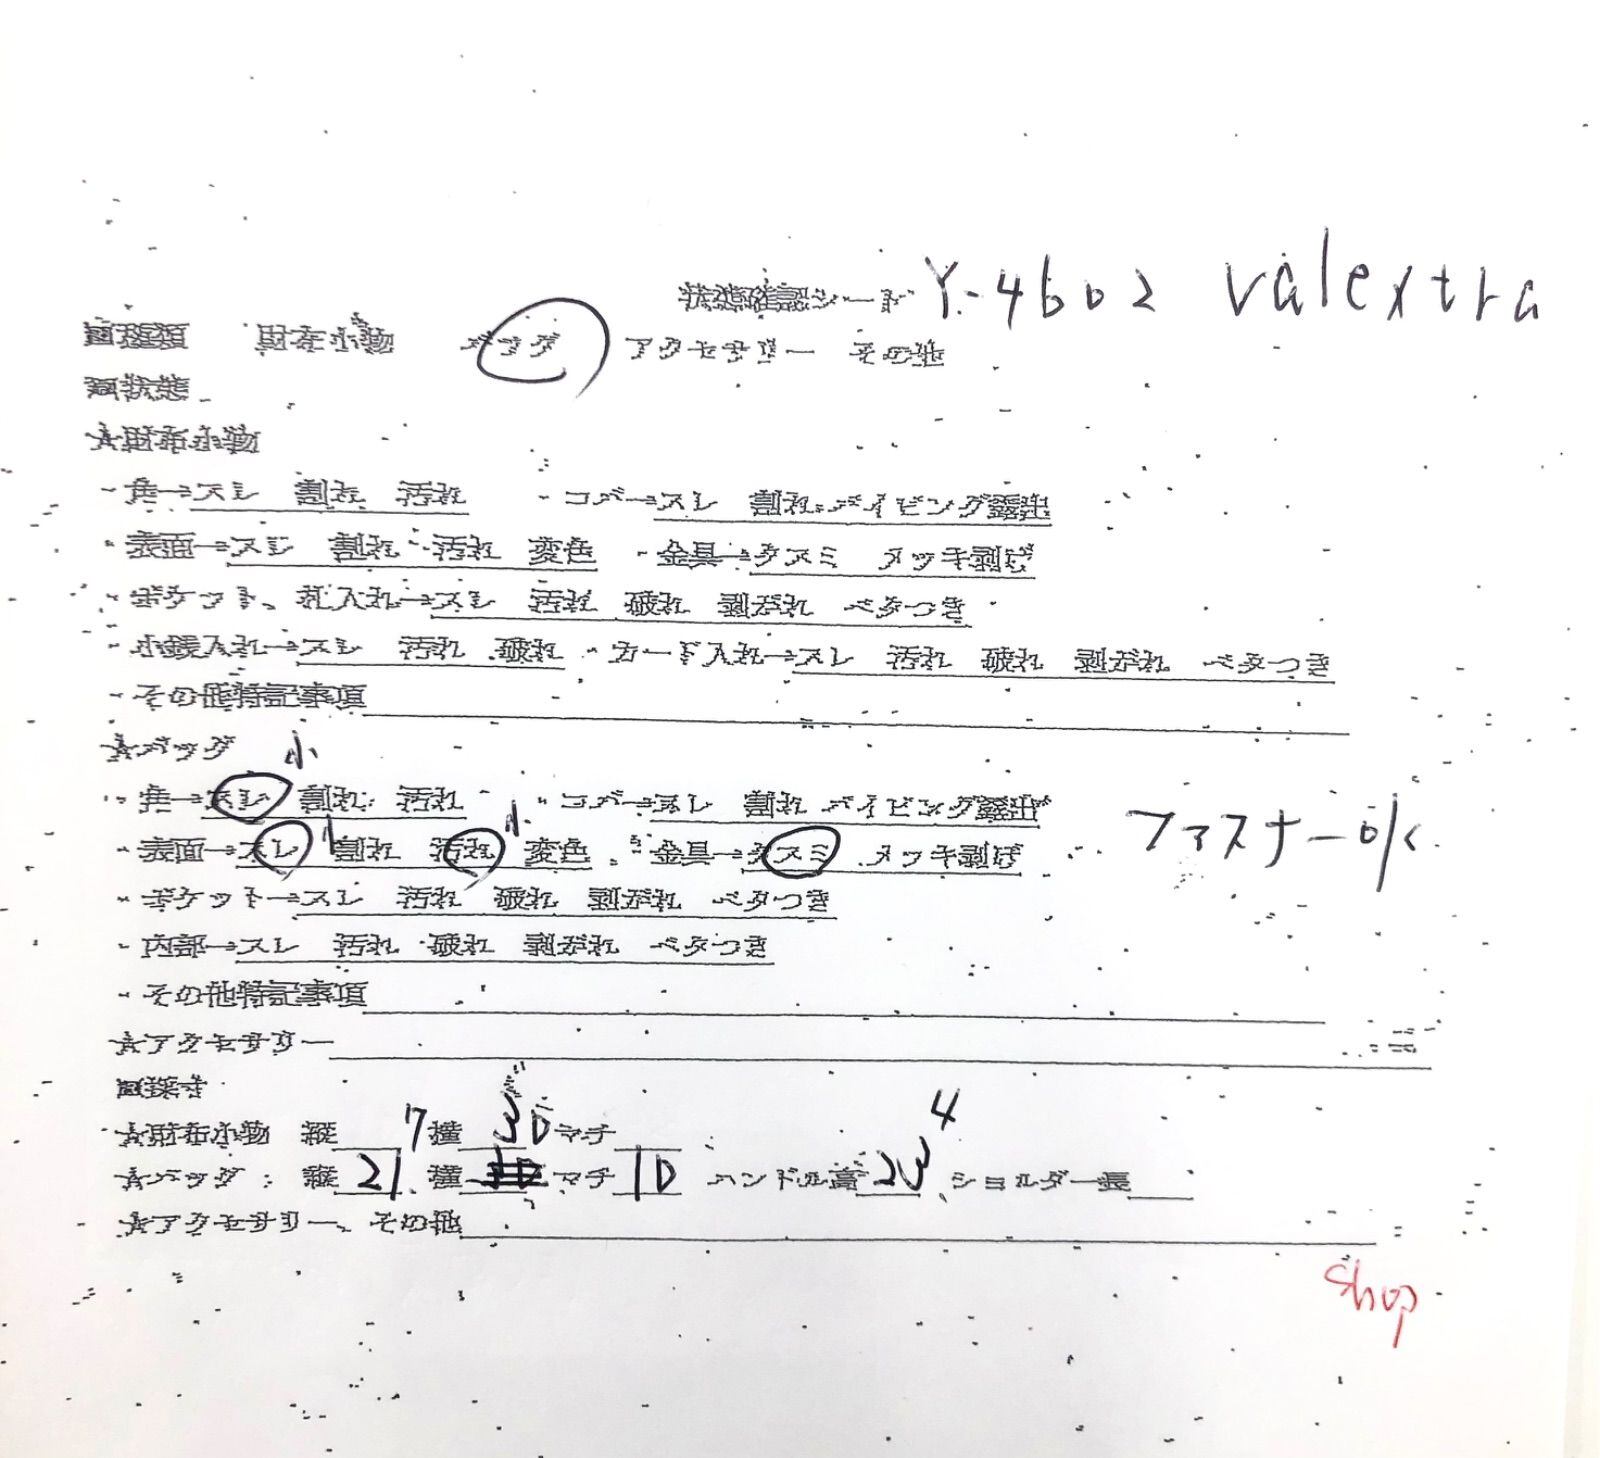 状態確認シート Y-4602 valextra
□種類 財布小物 バッグ アクセサリー その他
□状態
★財布小物
・角→スレ 割れ 汚れ ・コバ→スレ 割れ パイピング露出
・表面→スレ 割れ 汚れ 変色 ・金具→クスミ メッキ剥げ
・ポケット、札入れ→スレ 汚れ 破れ 剥がれ ベタつき
・小銭入れ→スレ 汚れ 破れ ・カード入れ→スレ 汚れ 破れ 剥がれ ベタつき
・その他特記事項
★バッグ 小
・角→スレ 割れ 汚れ ・コバ→スレ 割れ パイピング露出
・表面→スレ 小 割れ 汚れ 小 変色 ・金具→クスミ メッキ剥げ ファスナーOK
・ポケット→スレ 汚れ 破れ 剥がれ ベタつき
・内部→スレ 汚れ 破れ 剥がれ ベタつき
・その他特記事項
★アクセサリー
□採寸
★財布小物 縦 7 横 30 マチ 4
★バッグ:縦 21 横 マチ 10 ハンドル高 23 ショルダー長
★アクセサリー、その他
shop